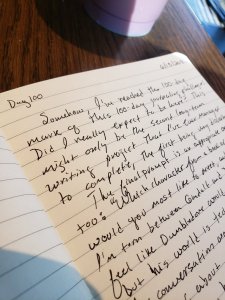 Day 100
Somehow, I've reached the 100-day
mark of this 100-day journaling challenge.
Did I really expect to be here? This
might only be the second long-term
writing project that I've ever managed
to complete, the first being my
The final prompt is an appropriate one
too: Which character from a book
would you most like to meet and
I'm torn between Gandalf and
feel like Dumbledore would
but his world is
conversation
about